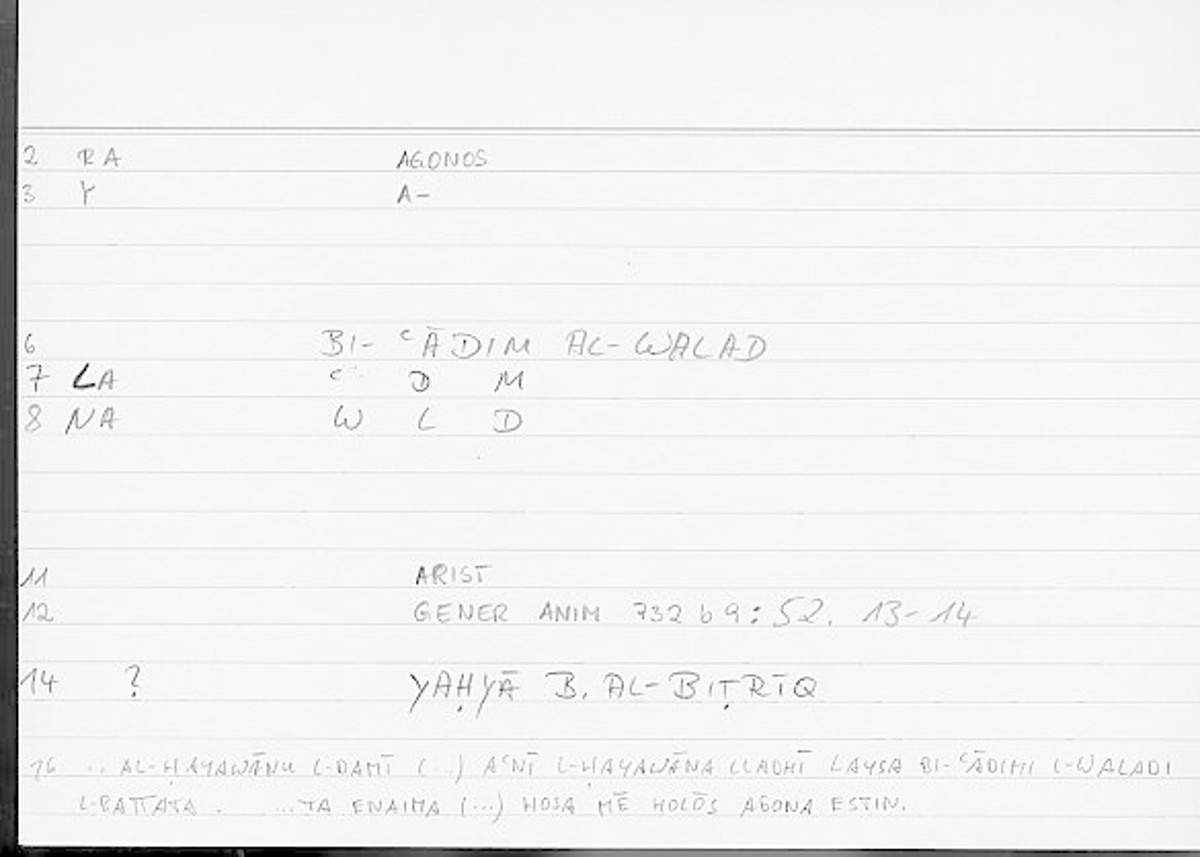 2 RA AGONOS
3 Y A-
6 BI- ʿĀDIM AL-WALAD
7 LA ʿ D M
8 NA W L D
11 ARIST
12 GENER ANIM 732 b 9: 52. 13-14
14 ? YAḤYĀ B. AL-BIṬRĪQ
16 .. AL-ḤAYAWĀNU L-DAMĪ (...) AʿNĪ L-ḤAYAWĀNA LLADHĪ LAYSA BI-ʿĀDIMI L-WALADI
L-BATTATA. ...TA ENAIMA (...) HOSA MĒ HOLŌS AGONA ESTIN.